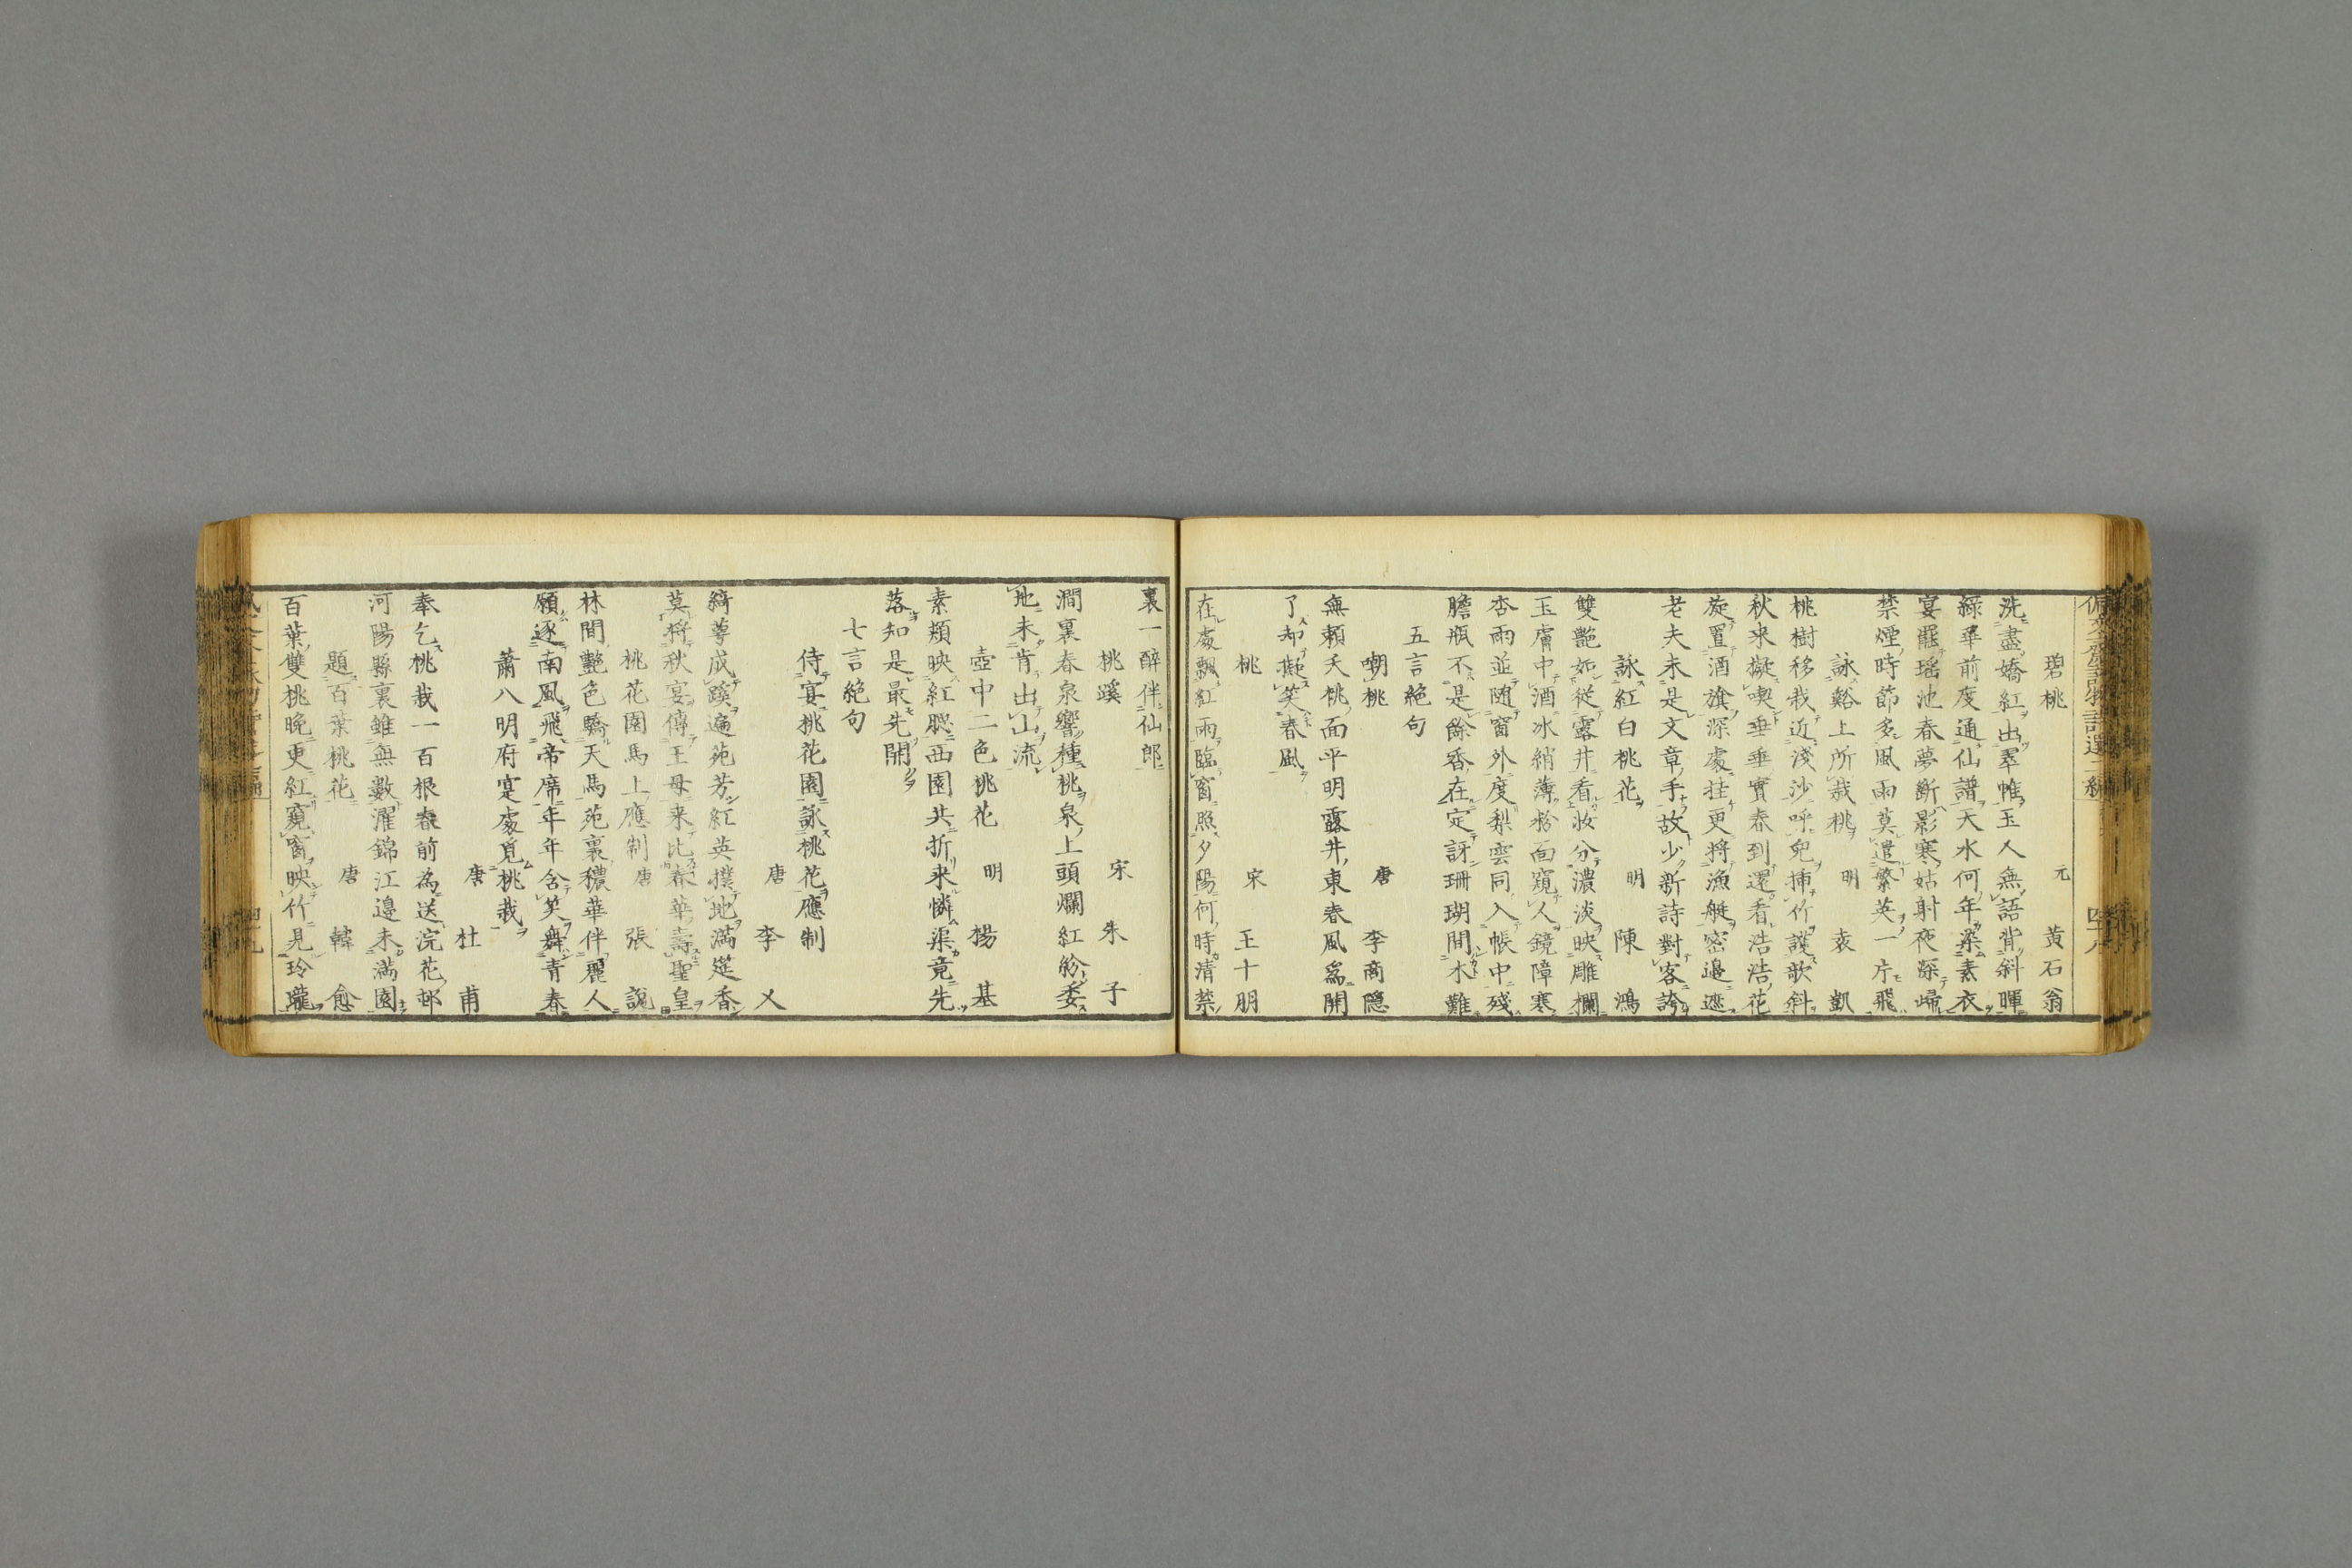 碧桃 元 黄石翁
洗盡嬌紅出翠帷玉人無語背斜暉
緑華前度通仙譜天水何年染素衣
宴罷瑶池春夢斷影寒姑射夜深歸
禁煙時節多風雨莫遣繁英一片飛
詠谿上所栽桃 明 袁凱
桃樹移栽近淺沙呼兒挿竹護欹斜
秋来擬喫垂垂實春到還看浩浩花
旋置酒旗深處挂更將漁艇密邉遮
老夫未是文章手故少新詩對客誇
詠紅白桃花 明 陳鴻
雙艶如從露井看妝分濃淡映雕欄
玉膚中酒冰綃薄粉面窺人鏡障寒
杏雨並随窗外度梨雲同入帳中殘
膽瓶不是餘香在定訝珊瑚間木難
五言絶句
嘲桃 唐 李商隱
無頼夭桃面平明露井東春風為開
了却擬笑春風
桃 宋 王十朋
在處飄紅雨臨窗照夕陽何時清禁
裏一醉伴仙郎
桃蹊 宋 朱子
澗裏春泉響種桃泉上頭爛紅紛委
地未肯出山流
壺中二色桃花 明 楊基
素頬映紅腮西園共折来憐渠竟先
落知是最先開
七言絶句
侍宴桃花園詠桃花應制
唐 李乂
綺萼成蹊遍苑芳紅英撲地滿筵香
莫將秋宴傳王母来比春華壽聖皇
桃花園馬上應制 唐 張說
林間艶色驕天馬苑裏穠華伴麗人
願逐南風飛帝席年年含笑舞青春
蕭八明府寔處覓桃栽
唐 杜甫
奉乞桃栽一百根春前為送浣花邨
河陽縣裏雖無數濯錦江邉未滿園
題百葉桃花 唐 韓愈
百葉雙桃晚更紅窺窗映竹見玲瓏